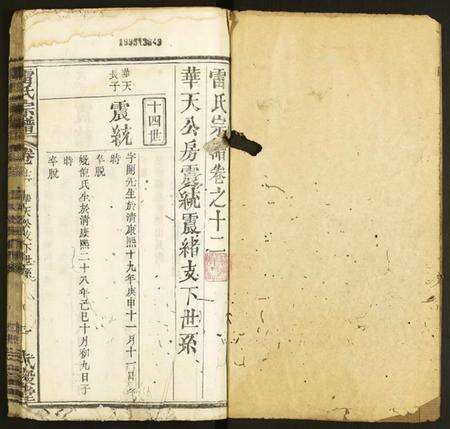 雷氏宗譜卷之十二
華天公房震統震緒支下世系
十四世
華天
長子
震統
字開先生於清康熙十九年庚申十一月十一日
時
卒脫
娶倪氏生於清康熙二十八年己巳十月初九日子
時
卒脫
雷氏宗譜